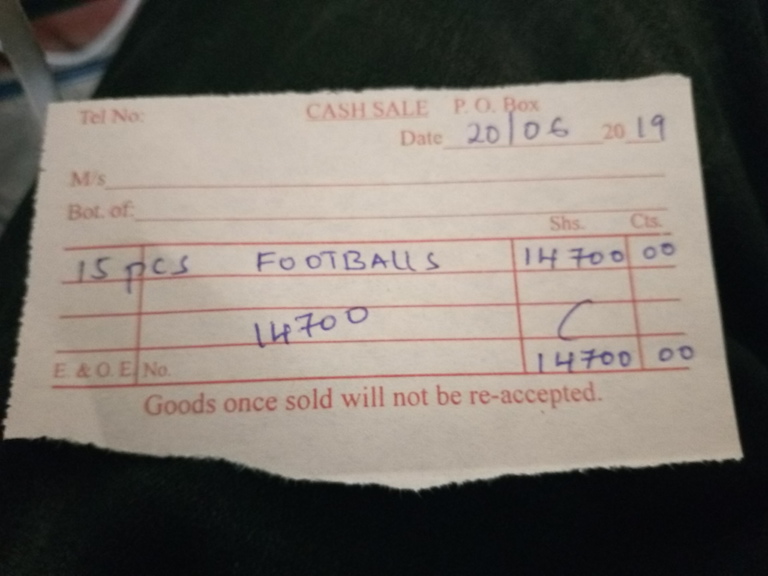 Tel No: CASH SALE P. O. Box
Date 20/06 2019
M/s
Bot. of:
Shs. Cts.
15 pcs FOOTBALLS 14700 00
14700
E. & O. E. No. 14700 00
Goods once sold will not be re-accepted.